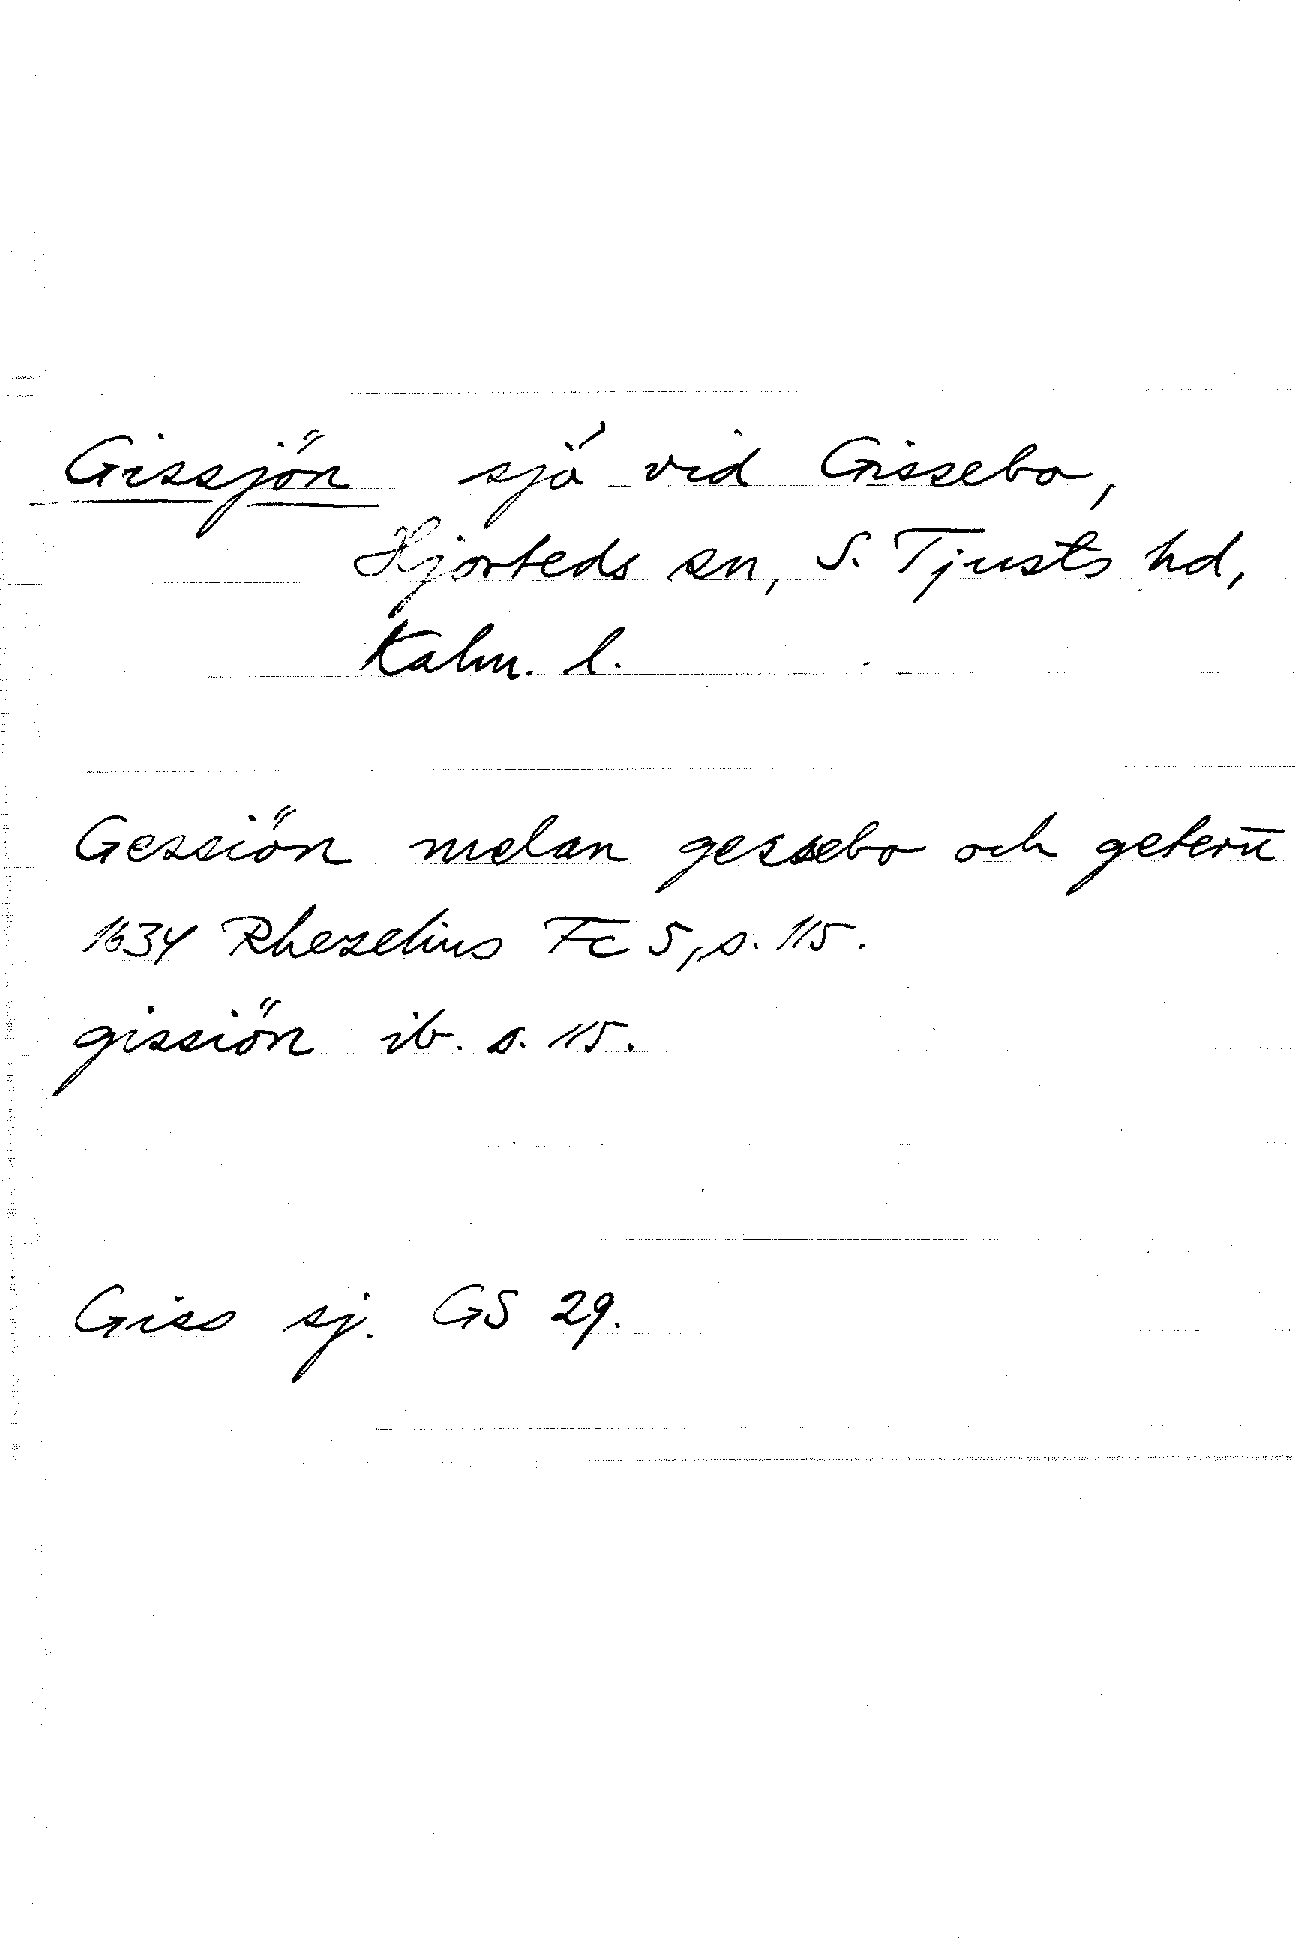 Gissjön sjö vid Gissebo,
Hjorteds sn, S. Tjusts hd,
Kalm. l.
Gessiön melan gessebo och getern̄
1634 Rhezelius Fc 5, s. 115.
gissiön ib. s. 115.
Giss sj. GS 29.